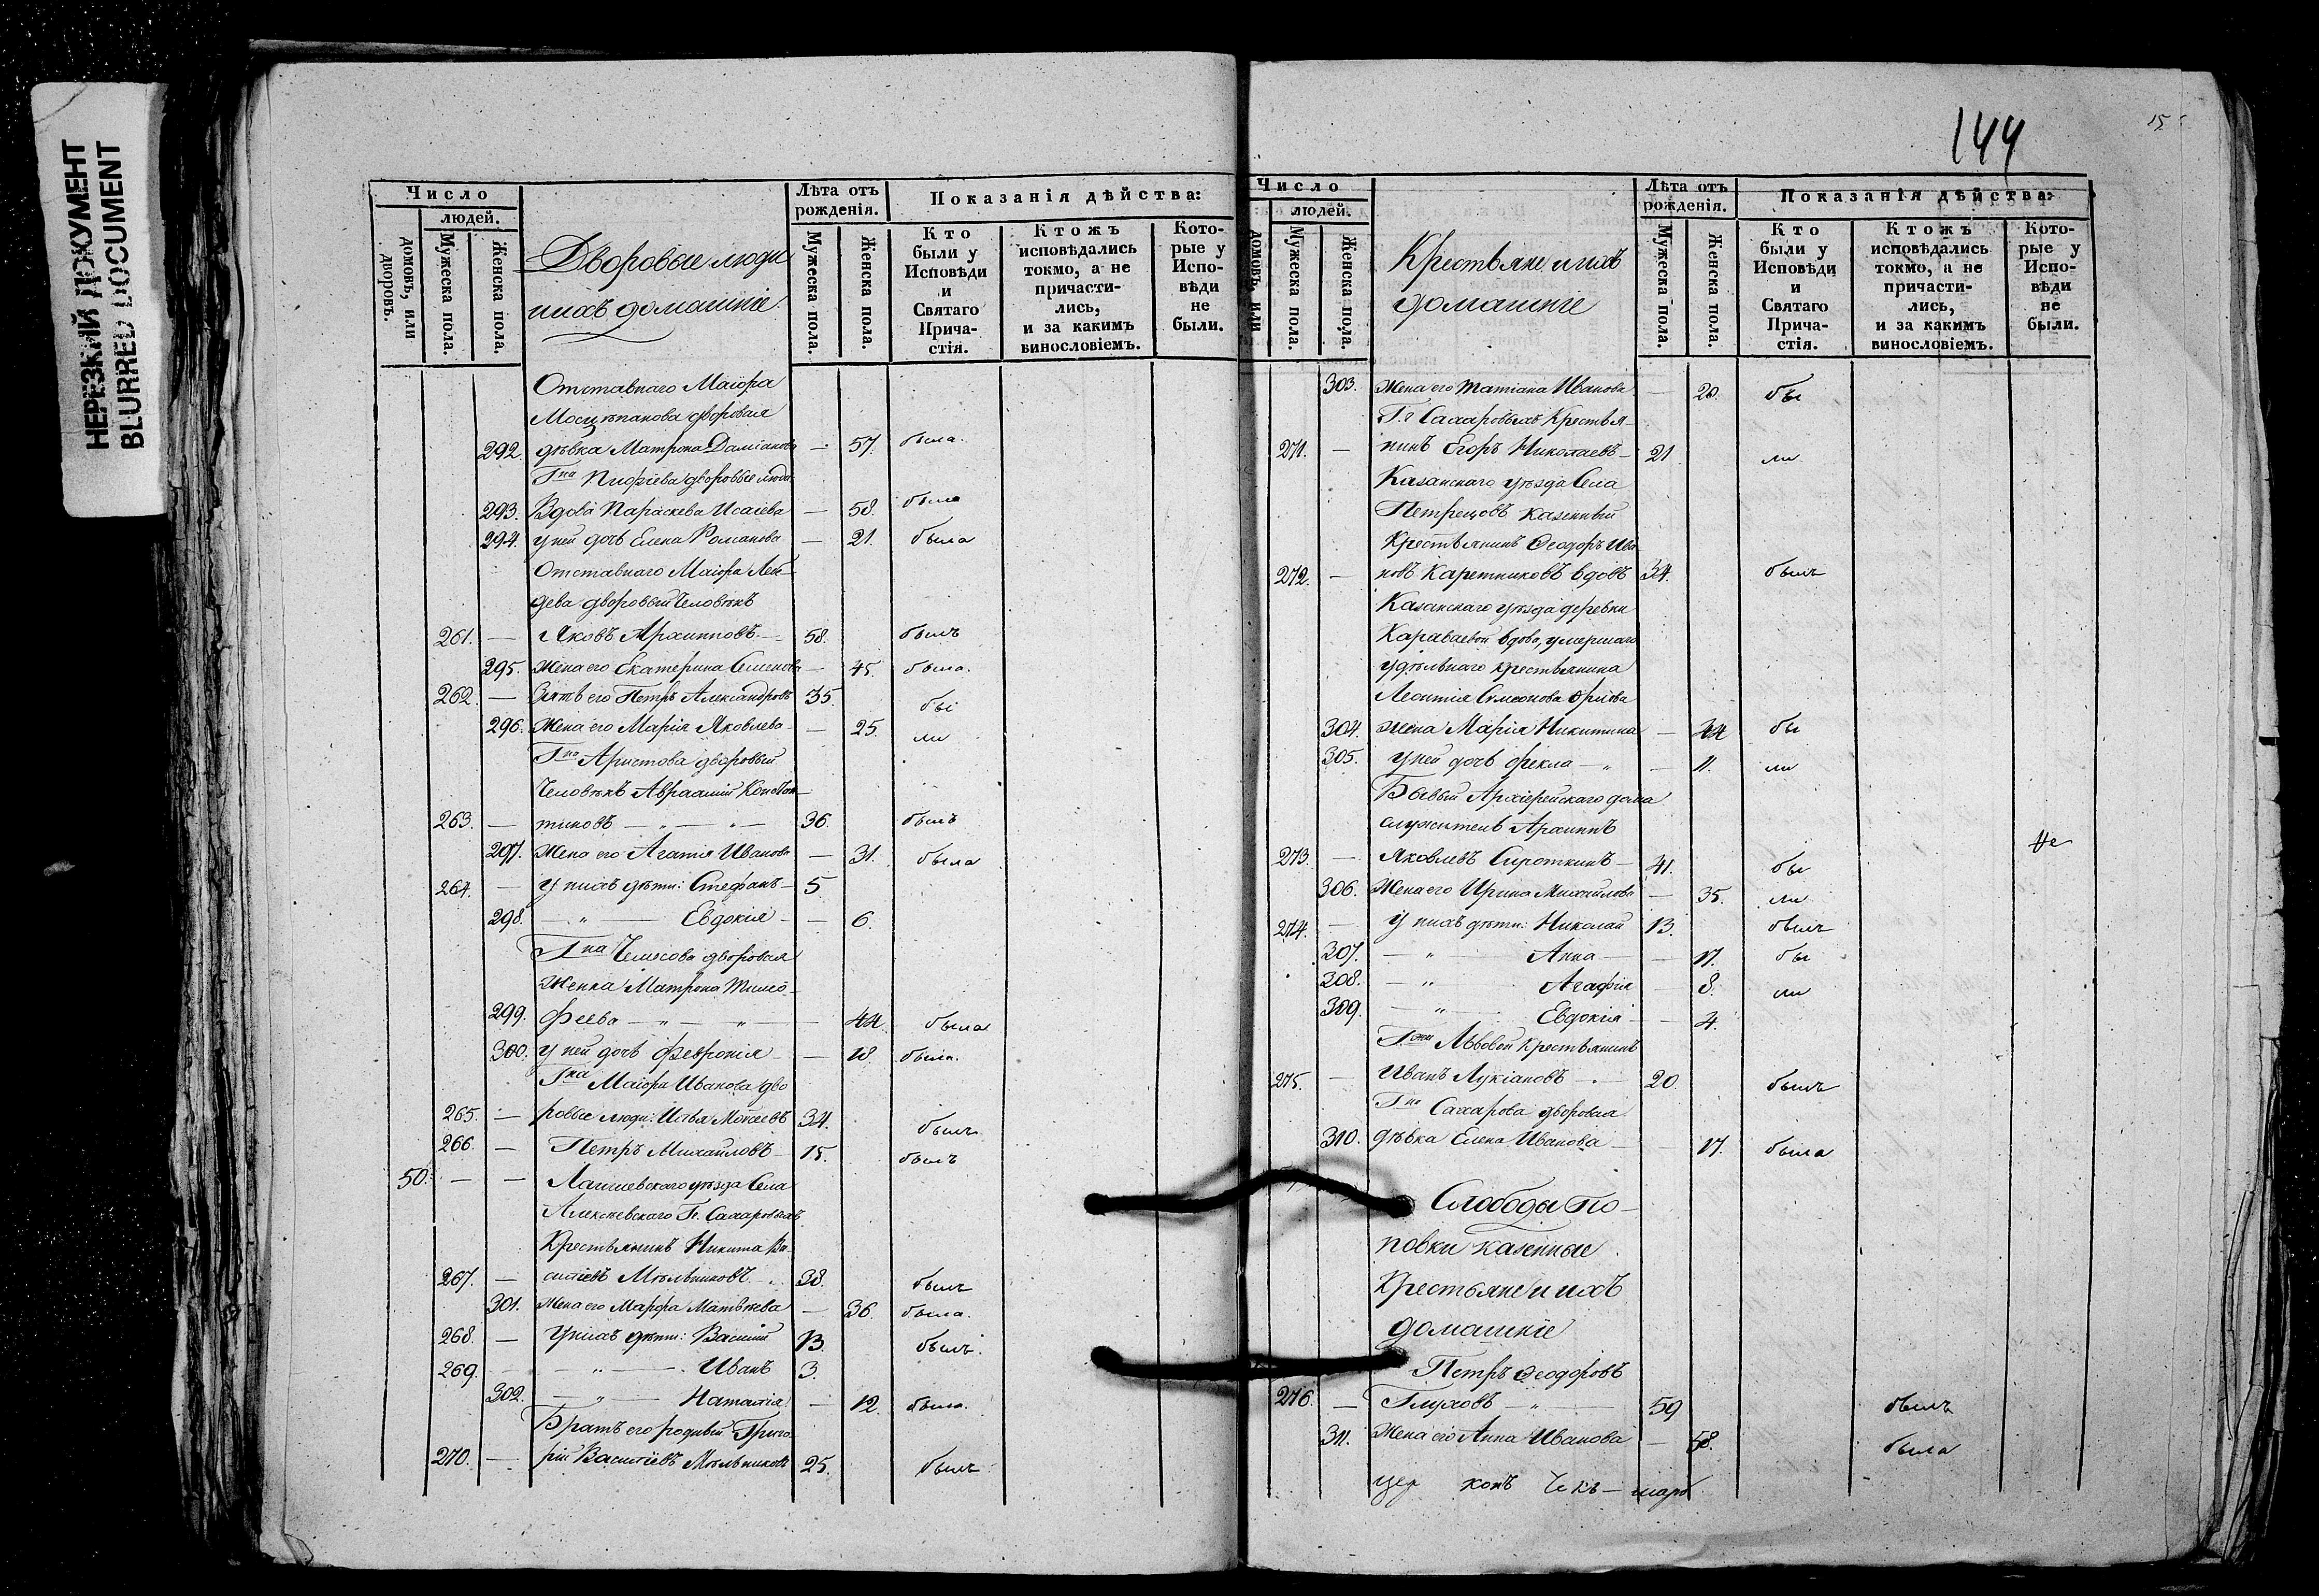 НЕРЕЗКИЙ ДОКУМЕНТ
BLURRED DOCUMENT
Число
людей.
домовъ, или дворовъ.
Мужеска пола.
Женска пола.
Дворовые люди
и ихъ домашніе.
Лѣта отъ рожденія.
Мужеска пола.
Женска пола.
Показанія дѣйства:
Кто были у Исповѣди и Святаго Прича- стія.
Ктожъ исповѣдались токмо, а не причасти- лись, и за какимъ винословіемъ.
Кото- рые у Испо- вѣди не были.
Отставнаго Маіора
дворовая
292. дѣвка Матрона Даміанова — 57. была.
Гна дворовые люди
293. Вдова Параскева Исаіева — 58. была
294. у ней дочь Елена Романова — 21. была
Отставнаго Маіора Лебе-
дева дворовый Человѣкъ
261. — Яковъ Архиповъ — 58. былъ
295. Жена его Екатерина Семенова — 45. была.
262. — Зять его Петръ Александровъ 35. бы
296. Жена его Марія Яковлева — 25. ли
Гна Аристова дворовый
Человѣкъ Авраамій Констан-
263. — тиновъ — „ — „ — 36. былъ
297. Жена его Агапія Иванова — 31. была
264. — у нихъ дѣти: Стефанъ — 5
298. — „ — Евдокія — — 6.
Гна Чемесова дворовая
Женка Матрона Тимо-
299. феева — „ — „ — — 44. была
300. У ней дочь Февронія — — 18. была.
Гна Маіора Иванова дво
265. — ровые люди: Илья Моѵсеевъ 34. былъ
266. — Петръ Михайловъ 15. былъ
50. — — Лаишевскаго уѣзда Села
Алексѣевскаго Гг. Сахаровыхъ
Крестьянинъ Никита Ва-
267. — силіевъ Мѣльниковъ — 38. былъ
301. Жена его Марфа Матвѣева — 36. была.
268. — У нихъ дѣти: Василій 13. былъ.
269. — — „ — Иванъ 3.
302. — „ — Наталія — 12. была.
Братъ его родный Григо-
270. — рій Василіевъ Мѣльниковъ 25. былъ
144
15
Число
людей.
домовъ, или
Мужеска пола.
Женска пола.
Крестьяне и ихъ
домашніе
Лѣта отъ рожденія.
Мужеска пола.
Женска пола.
Показанія дѣйства:
Кто были у Исповѣди и Святаго Прича- стія.
Ктожъ исповѣдались токмо, а не причасти- лись, и за какимъ винословіемъ.
Кото- рые у Испо- вѣди не были.
303. Жена его Татіана Иванова — 20. бы
Гг. Сахаровыхъ Крестья-
271. — нинъ Егоръ Николаевъ — 21 ли
Казанскаго уѣзда Села
Петрецовъ казенный
Крестьянинъ Ѳеодоръ Ива
272. — новъ Каретниковъ вдовъ 34. былъ
Казанскаго уѣзда деревни
Караваевой вдова, умершаго
удѣльнаго крестьянина
Леонтія Симеонова Орлова
304. жена Марія Никитина — 44 бы
305. У ней дочь Ѳекла — „ — 11. ли
Бывый Архіерейскаго дома
служитель Архиппъ
Не
273. — Яковлевъ Сироткинъ — 41. бы
306. Жена его Ирина Михайлова — 35. ли
274. — У нихъ дѣти: Николай 13. былъ
307. — „ — Анна — — 17. бы
308. — „ Агафія — 8. ли
309. — „ Евдокія — — 4.
Гжи Львовой Крестьянинъ
275. — Иванъ Лукіановъ — 20 былъ
Гна Сахарова дворовая
310. дѣвка Елена Иванова — — 17. была
Слободы По-
повки казенные
Крестьяне и ихъ
домашніе
Петръ Ѳеодоровъ
276. — Глуховъ — „ — 59 былъ
311. Жена его Анна Иванова — 58. была